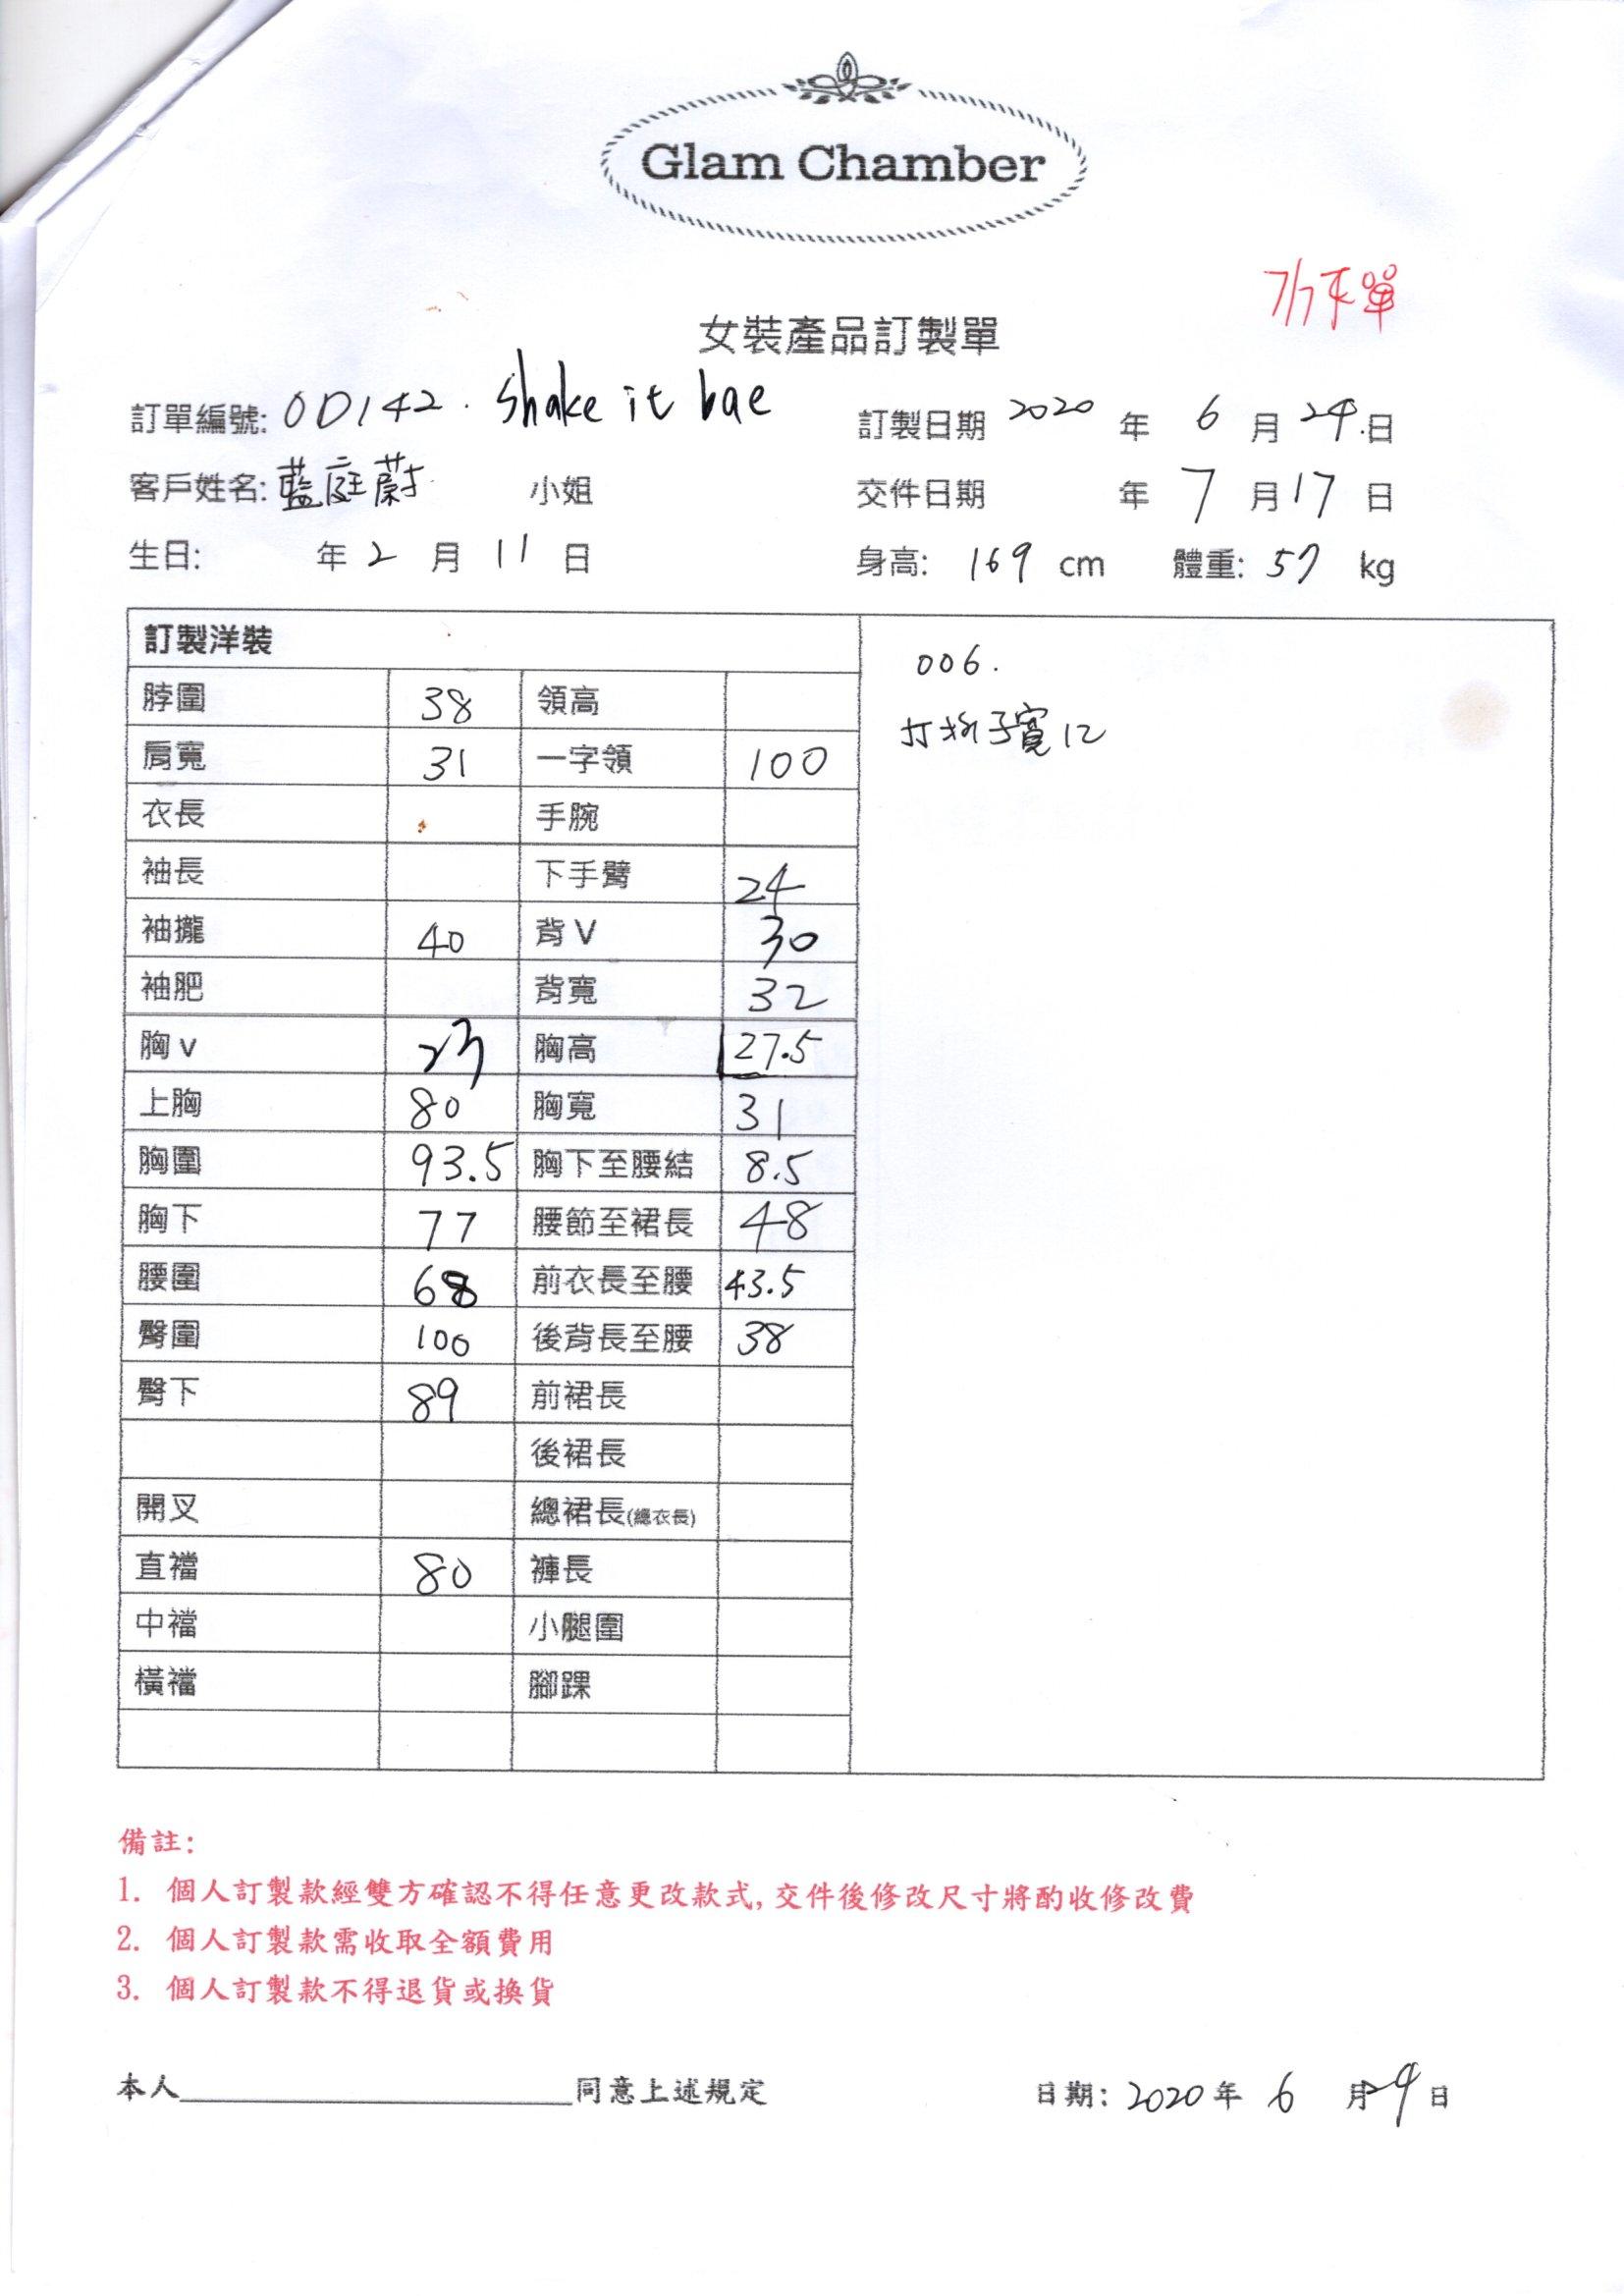 Glam Chamber
7/7下單
女裝產品訂製單
訂單編號: OD142. Shake it bae 訂製日期 2020 年 6 月 24.日
客戶姓名: 藍庭蔚 小姐 交件日期 年 7 月 17 日
生日: 年 2 月 11 日 身高: 169 cm 體重: 57 kg
訂製洋裝
006.
脖圍 38 領高
打折子寬12
肩寬 31 一字領 100
衣長 手腕
袖長 下手臂 24
袖攏 40 背V 30
袖肥 背寬 32
胸v 23 胸高 27.5
上胸 80 胸寬 31
胸圍 93.5 胸下至腰結 8.5
胸下 77 腰節至裙長 48
腰圍 68 前衣長至腰 43.5
臀圍 100 後背長至腰 38
臀下 89 前裙長
後裙長
開叉 總裙長(總衣長)
直襠 80 褲長
中襠 小腿圍
橫襠 腳踝
備註:
1. 個人訂製款經雙方確認不得任意更改款式, 交件後修改尺寸將酌收修改費
2. 個人訂製款需收取全額費用
3. 個人訂製款不得退貨或換貨
本人 同意上述規定 日期: 2020 年 6 月 日